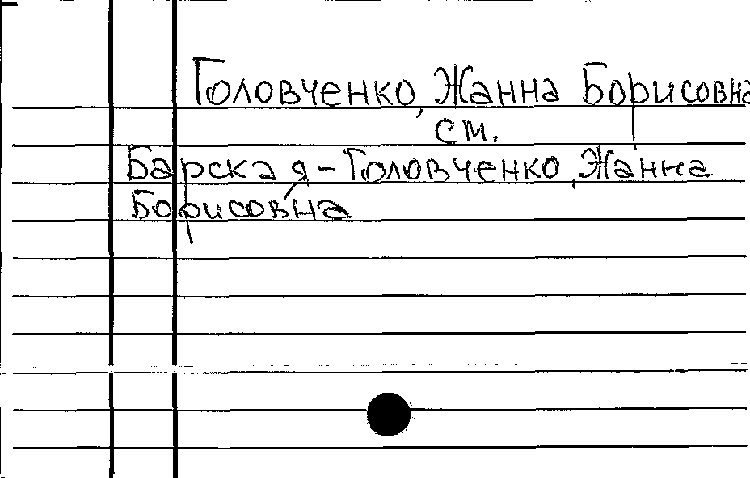 Головченко, Жанна Борисовна
см.
Барская-Головченко, Жанна
Борисовна